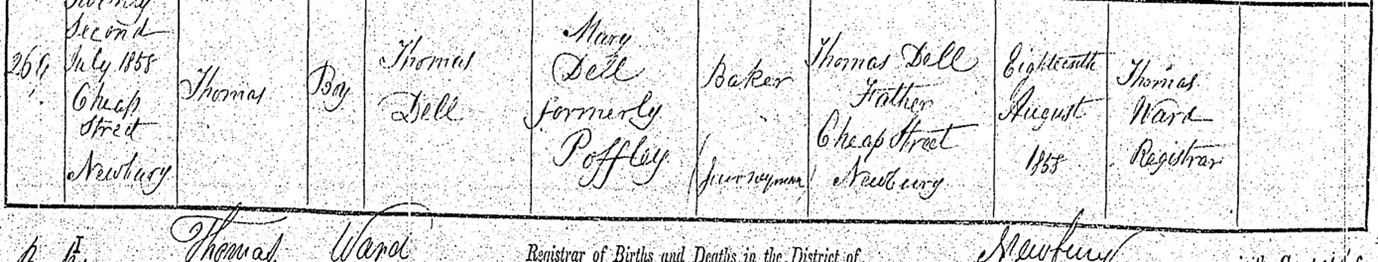 Second
269
July 1858
Cheap
Street
Newbury
Thomas
Boy
Thomas
Dell
Mary
Dell
formerly
Poffley
Baker
(Journeyman)
Thomas Dell
Father
Cheap Street
Newbury
Eighteenth
August
1858
Thomas
Ward
Registrar
Thomas Ward
Registrar of Births and Deaths in the District of
Newbury